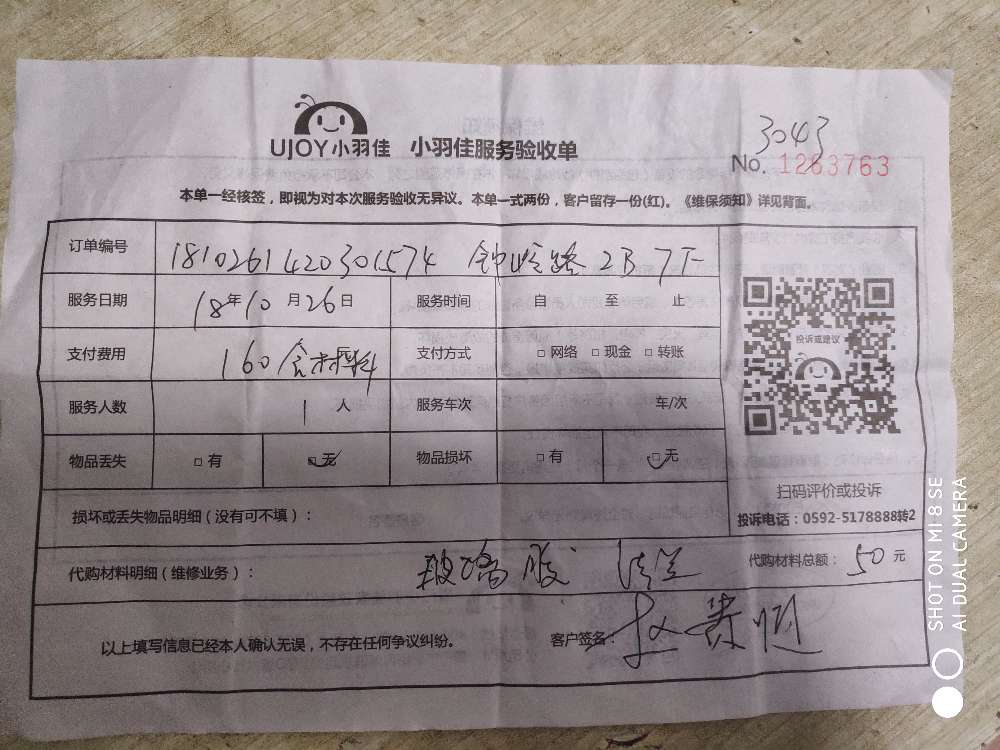 3043
UJOY小羽佳 小羽佳服务验收单
No. 1263763
本单一经核签，即视为对本次服务验收无异议。本单一式两份，客户留存一份(红)。《维保须知》详见背面。
订单编号 1810261420301574 路 2B 7下
服务日期 18年10月26日 服务时间 自 至 止
支付费用 160含材料 支付方式 □网络 □现金 □转账
服务人数 1人 服务车次 车/次
投诉或建议
物品丢失 □有 □无 物品损坏 □有 □无
扫码评价或投诉
投诉电话：0592-5178888转2
损坏或丢失物品明细（没有可不填）：
代购材料明细（维修业务）： 玻璃胶 法兰 代购材料总额：50元
以上填写信息已经本人确认无误，不存在任何争议纠纷。 客户签名：
SHOT ON MI 8 SE
AI DUAL CAMERA